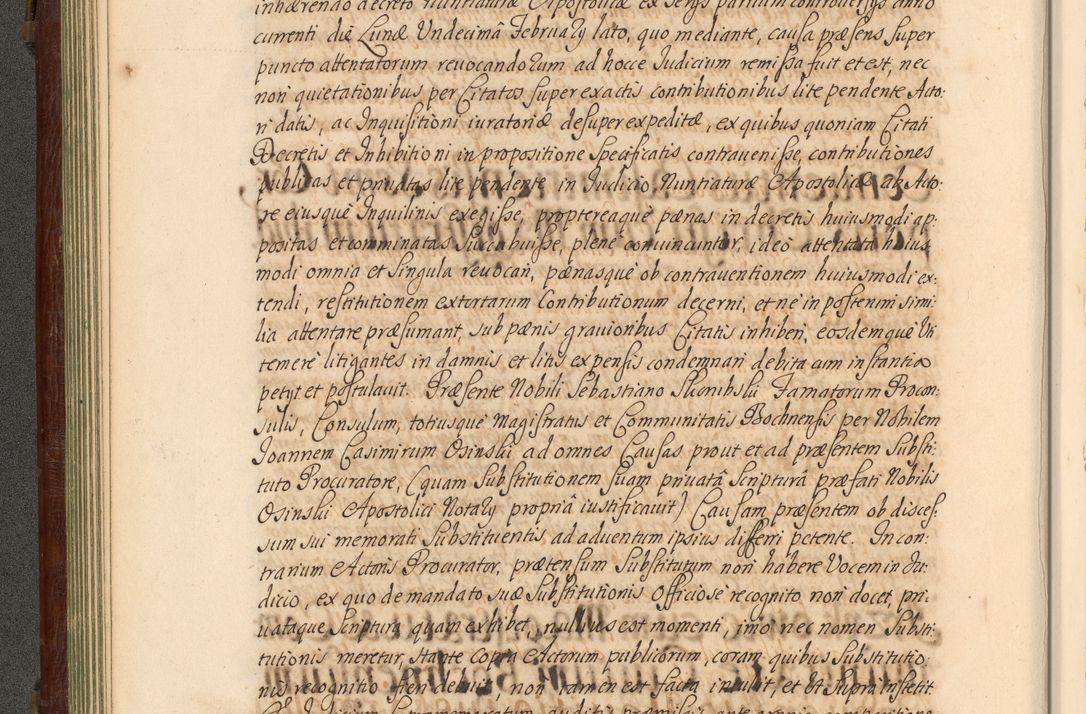 inhærendo decreto Nuntiaturæ Apostolicæ ex serijs partium controversijs anno
currenti die Lunæ Undecimâ Februarij lato, quo mediante, causa præsens super
puncto attentatorum reuocandorum ad hocce Judicium remissa fuit et est, nec
non quietationibus per Citatos super exactis contributionibus lite pendente Acto
ri datis, ac Inquisitioni iuratoriæ desuper expeditæ, ex quibus quoniam Citati
Decretis et Inhibitioni in propositione specificatis contrauenisse, contributiones
publicas et priuatas lite pendente in Judicio Nuntiaturæ Apostolicæ ab Acto
re eiusque Inquilinis exegisse, proptereaque pænas in decretis huiusmodi ap:
positas et comminatas succubuisse, plene conuincuntur, ideo attentata huius
modi omnia et singula reuocari, pænasque ob contrauentionem huiusmodi ex:
tendi, restitutionem extortarum Contributionum decerni, et ne in posterum simi:
lia attentare præsumant, sub pænis grauioribus Citatis inhiberi, eosdemque Uti
temere litigantes in damnis et litis expensis condemnari debita cum instantia
petijt et postulauit. Præsente Nobili Sebastiano Famatorum Procon:
sulis, Consulum, totiusque Magistratus et Communitatis Bochnensis per Nobilem
Joannem Casimirum Osinski ad omnes Causas prout et ad præsentem Substi:
tuto Procuratore, (quam Substitutionem suam priuatâ Scripturâ præfati Nobilis
Osinski Apostolici Notarij propriâ iustificauit) Causam præsentem ob disces:
sum sui memorati Substituentis ad aduentum ipsius differri petente. In con:
trarium Actoris Procurator, prætensum Substitutum non habere Vocem in Ju:
dicio, ex quo de mandato suæ Substitutionis Officiose recognito non docet, pri:
uataque Scriptura quam exhibet, nullius est momenti, imo nec nomen Substi:
tutionis meretur, stante copia Actorum publicorum, coram quibus Substitutio:
nis recognitio fieri debuit, non tamen est facta intulit, et Ut supra institit